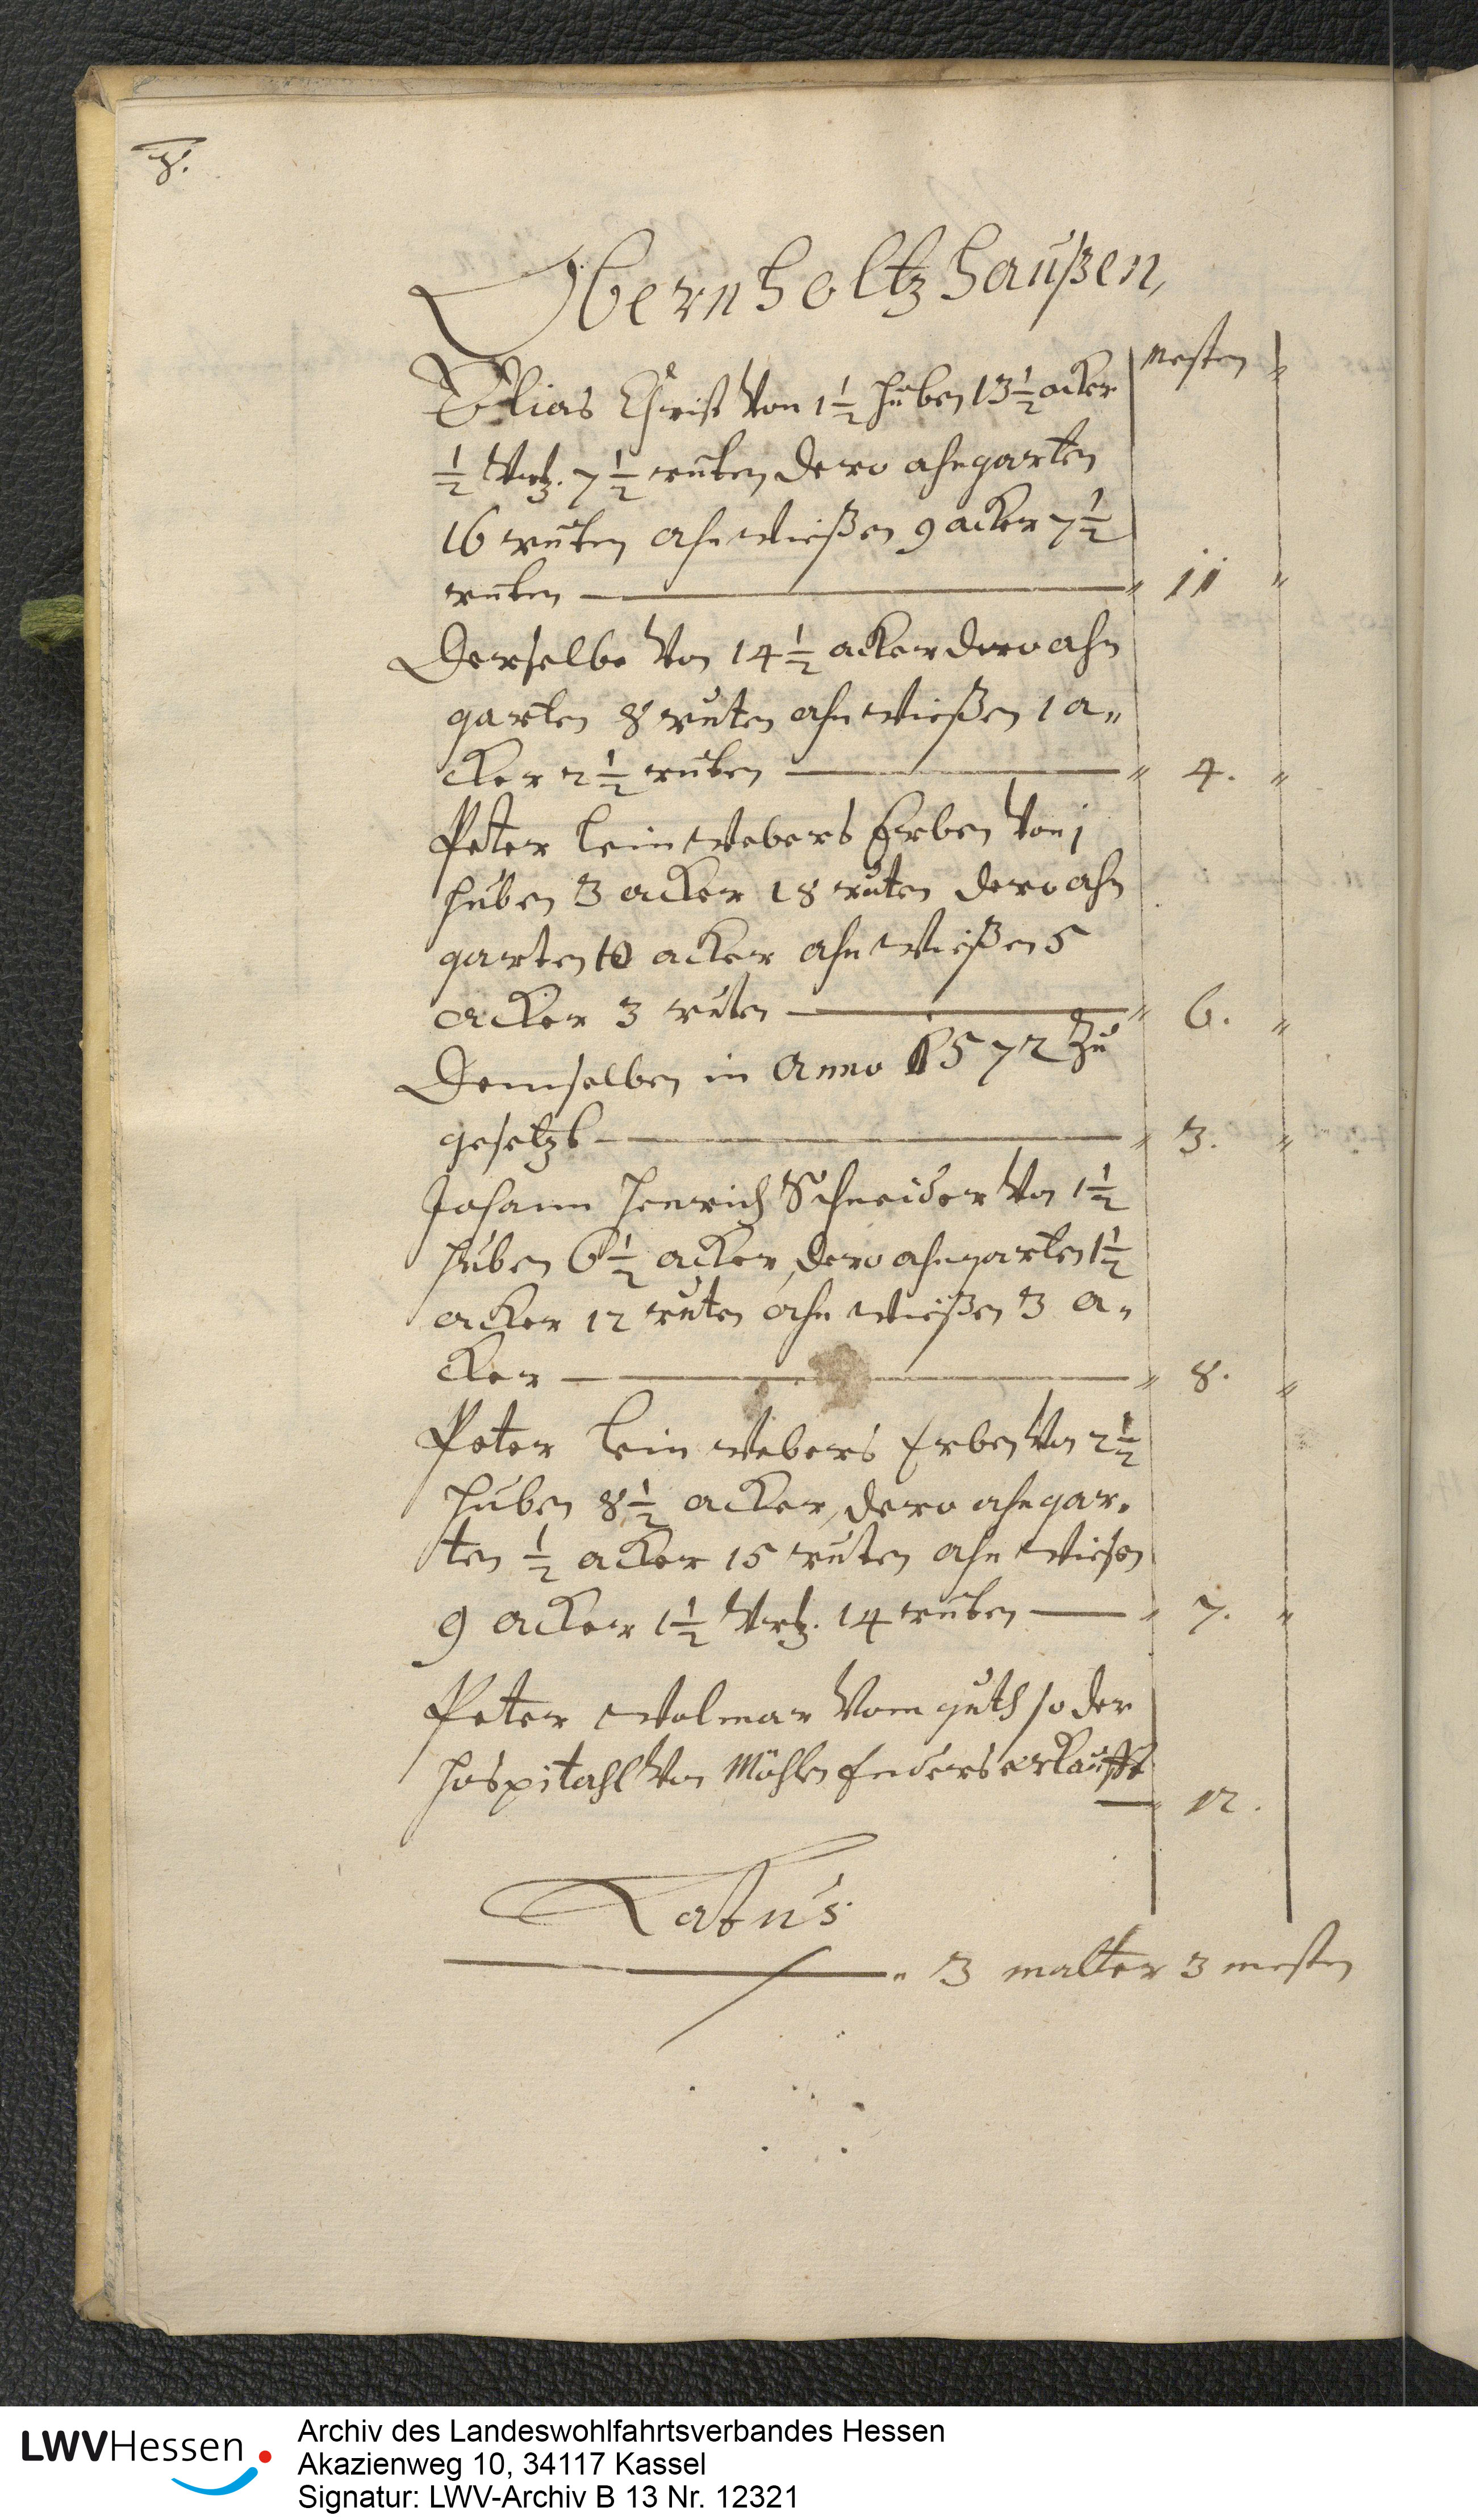 8.
Obernholtzhaußen,
Mesten
Elias Christ Von 1 1/2 huben 13 1/2 acker
1/2 Vrtz. 7 1/2 ruten dero ahn garten
16 ruten ahn wießen 9 acker 7 1/2
ruten — " 11 "
Derselbe Von 14 1/2 acker dero ahn
garten 8 ruten ahn wießen 1 a"
cker 2 1/2 ruten — " 4. "
Peter leinwebers Erben Von 1
huben 3 acker 18 ruten dero ahn
garten 10 acker ahn wießen 5
acker 3 ruten — " 6. "
Demselben in Anno 1572 Zu
gesetzt — " 3. "
Johann Henrich Schneider Von 1 1/2
huben 6 1/2 acker, dero ahn garten 1 1/2
acker 12 ruten ahn wießen 3 a"
cker — " 8. "
Peter leinwebers Erben Von 2 1/2
huben 8 1/2 acker, dero ahn gar"
ten 1/2 acker 15 ruten ahn wiesen
9 acker 1 1/2 Vrtz. 14 ruten — " 7. "
Peter Wolmar Vom guth so der
Hospitahl Von Möhln Enders erkaufft
— " 12.
Latus
— " 3 malter 3 mesten
LWVHessen
Archiv des Landeswohlfahrtsverbandes Hessen
Akazienweg 10, 34117 Kassel
Signatur: LWV-Archiv B 13 Nr. 12321